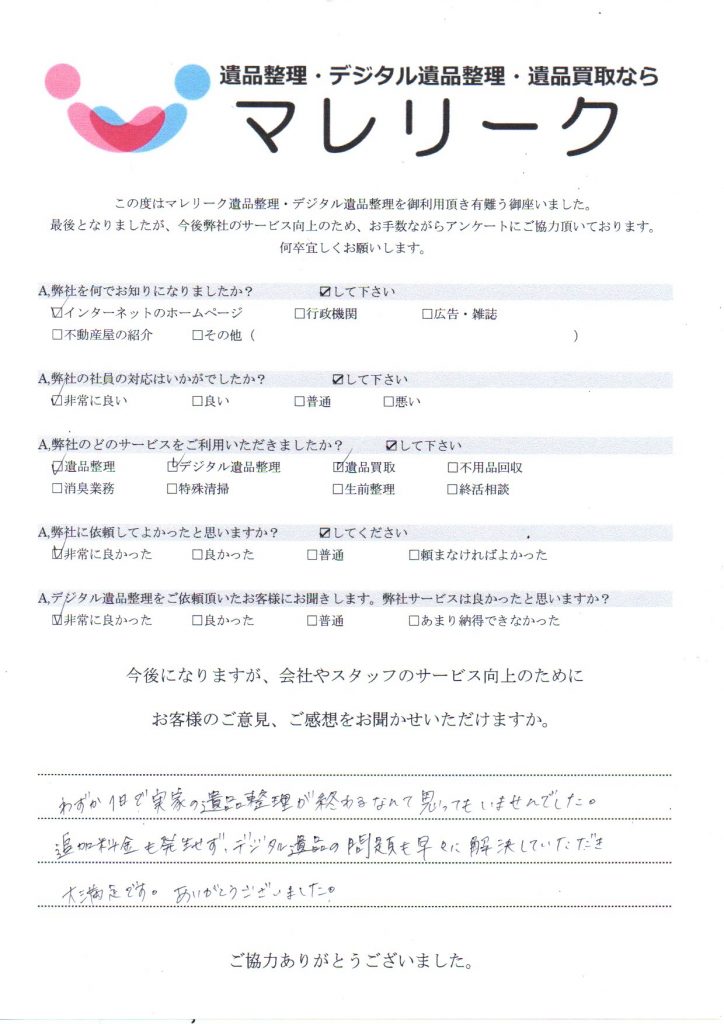 遺品整理・デジタル遺品整理・遺品買取なら
マレリーク
この度はマレリーク遺品整理・デジタル遺品整理を御利用頂き有難う御座いました。
最後となりましたが、今後弊社のサービス向上のため、お手数ながらアンケートにご協力頂いております。
何卒宜しくお願いします。
A,弊社を何でお知りになりましたか？ ☑して下さい
☑インターネットのホームページ □行政機関 □広告・雑誌
□不動産屋の紹介 □その他（ ）
A,弊社の社員の対応はいかがでしたか？ ☑して下さい
☑非常に良い □良い □普通 □悪い
A,弊社のどのサービスをご利用いただきましたか？ ☑して下さい
☑遺品整理 ☑デジタル遺品整理 ☑遺品買取 □不用品回収
□消臭業務 □特殊清掃 □生前整理 □終活相談
A,弊社に依頼してよかったと思いますか？ ☑してください
☑非常に良かった □良かった □普通 □頼まなければよかった
A,デジタル遺品整理をご依頼頂いたお客様にお聞きします。弊社サービスは良かったと思いますか？
☑非常に良かった □良かった □普通 □あまり納得できなかった
今後になりますが、会社やスタッフのサービス向上のために
お客様のご意見、ご感想をお聞かせいただけますか。
わずか1日で実家の遺品整理が終わるなんて思ってもいませんでした。
追加料金も発生せず、デジタル遺品の問題も早々に解決していただき
大満足です。ありがとうございました。
ご協力ありがとうございました。